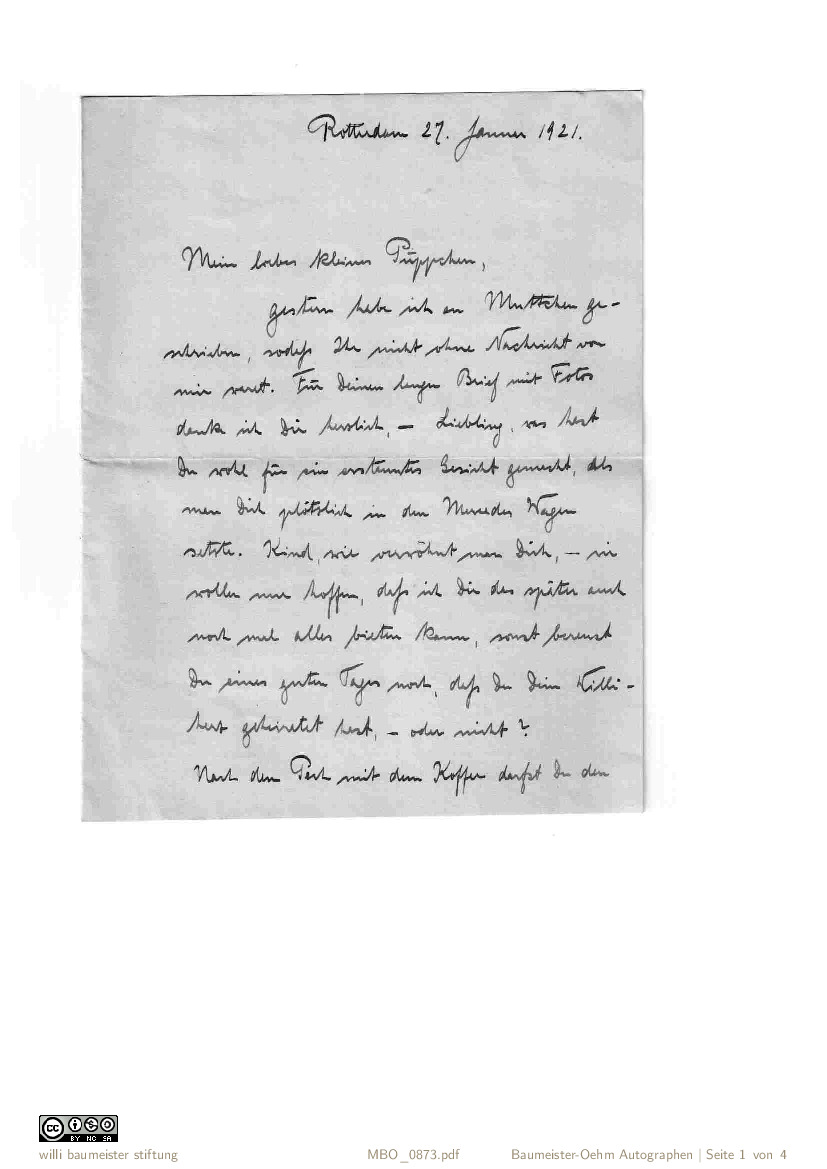 Rotterdam 27. Januar 1921.
Mein liebes kleines Püppchen,
gestern habe ich an Muttchen ge-
schrieben, sodaß Ihr nicht ohne Nachricht von
mir waret. Für Deinen langen Brief mit Fotos
danke ich Dir herzlich, – Liebling, was hast
Du wohl für ein erstauntes Gesicht gemacht, als
man Dich plötzlich in den Mercedes Wagen
setzte. Kind, wie verwöhnt man Dich, – wir
wollen nur hoffen, daß ich Dir das später auch
noch mal alles bieten kann, sonst bereust
Du eines guten Tages noch, daß Du Dein Willi-
geheiratet hast, – oder nicht?
Nach dem Pech mit dem Koffer darfst Du den
BY NC SA
willi baumeister stiftung MBO_0873.pdf Baumeister-Oehm Autographen | Seite 1 von 4